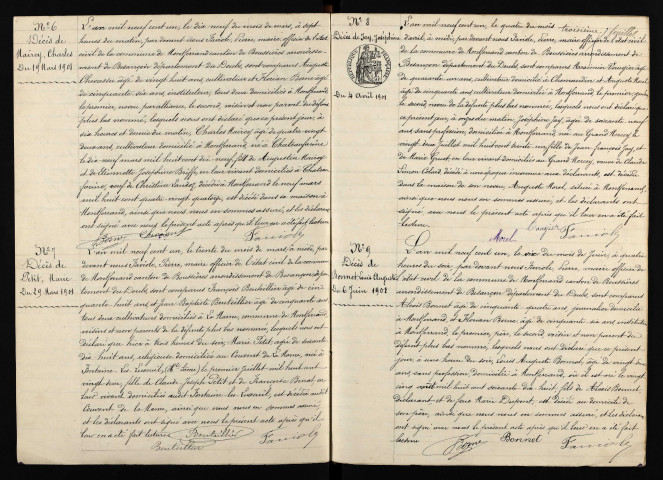 N° 6
Décès de
Mairey, Charles
Du 19 Mars 1901
L'an mil neuf cent un, le dix neuf du mois de mars, à sept
heures du matin, par devant nous Faivre, Pierre, maire officier de l'état
civil de la commune de Montferrand canton de Boussières arrondisse-
ment de Besançon département du Doubs, sont comparus Auguste
âgé de vingt huit ans, cultivateur et Florian Borne âgé
de cinquante six ans, instituteur, tous deux domiciliés à Montferrand,
le premier, neveu par alliance, le second, voisin et non parent du défunt
plus bas nommé, lesquels nous ont déclaré que ce présent jour, à
dix heures et demie du matin, Charles Mairey âgé de quatre vingt
deux ans, cultivateur domicilié à Montferrand, né à
le dix neuf mars mil huit cent dix neuf, fils de Augustin Mairey
et de Josephine
veuf de Christine décédée à Montferrand le neuf mars
mil huit cent quatre vingt quatorze, est décédé dans sa maison à
Montferrand, ainsi que nous nous en sommes assuré, et les déclarants
ont signé avec nous le présent acte après qu'il leur en a été fait lecture
Borne
N° 7
Décès de
Petit, Marie
Du 29 Mars 1901
L'an mil neuf cent un, le trente du mois de mars à midi, par
devant nous Faivre, Pierre, maire officier de l'état civil de la commune
de Montferrand canton de Boussières arrondissement de Besançon dépar-
tement du Doubs, sont comparus François Bouteiller âgé de cin-
quante huit ans et Jean Baptiste Bouteiller âgé de cinquante ans
tous deux cultivateurs domiciliés à commune de Montferrand
voisins et non parents de la défunte plus bas nommée, lesquels nous ont
déclaré que hier à trois heures du soir, Marie Petit âgée de soixante
dix huit ans, religieuse domiciliée au Couvent de née à
Fontaine-les-Luxeuil, (Hte Saône) le premier juillet mil huit cent
vingt deux, fille de Claude Joseph Petit et de Françoise
leur vivant domiciliés audit Fontaine-les-Luxeuil, est décédée audit
Couvent de ainsi que nous nous en sommes assuré,
et les déclarants ont signé avec nous le présent acte après qu'il
leur en a été fait lecture
Bouteiller
Bouteiller
troisième feuillet
N° 8
Décès de Jay, Joséphine
Du 4 Avril 1901
L'an mil neuf cent un, le quatre du mois
d'avril, à midi, par devant nous Faivre, Pierre, maire officier de l'état civil
de la commune de Montferrand canton de Boussières arrondissement de
Besançon département du Doubs, sont comparus
de quarante un ans, cultivateur domicilié à et Auguste Morel
âgé de cinquante ans cultivateur domicilié à Montferrand, le premier
le second, neveu de la défunte plus bas nommée, lesquels nous ont déclaré que
ce présent jour, à onze heures du matin, Joséphine Jay, âgée de soixante neuf
ans sans profession, domiciliée à Montferrand, née au Grand Mercey le
vingt deux Juillet mil huit cent trente un, fille de Jean François Jay, et
de Marie en leur vivant domiciliés au Grand Mercey, veuve de Claude
Simon décédé à une époque inconnue aux déclarants, est décédée
dans la maison de son neveu, Auguste Morel, située à Montferrand,
ainsi que nous nous en sommes assuré, et les déclarants ont
signé avec nous le présent acte après qu'il leur en a été fait
lecture.
Morel
N° 9
Décès de
Bonnet Louis Auguste
Du 6 Juin 1901
L'an mil neuf cent un, le six du mois de juin, à quatre
heures du soir, par devant nous Faivre, Pierre, maire officier de
l'état civil de la commune de Montferrand canton de Boussières
arrondissement de Besançon département du Doubs, sont comparus
Alexis Bonnet âgé de cinquante quatre ans, journalier domicilié
à Montferrand, et Florian Borne âgé de cinquante six ans instituteur
à Montferrand, le premier, père, le second voisin et non parent du
défunt plus bas nommé, lesquels nous ont déclaré que ce présent
jour, à une heure du soir, Louis Auguste Bonnet, âgé de vingt deux
ans sans profession domicilié à Montferrand, où il est né le vingt
cinq août mil huit cent soixante dix huit, fils de Alexis Bonnet,
déclarant et de Marie Dupont, est décédé au domicile de
son père, ainsi que nous nous en sommes assuré, et les déclarants
ont signé avec nous le présent acte après qu'il leur en a été fait
lecture
Borne
Bonnet